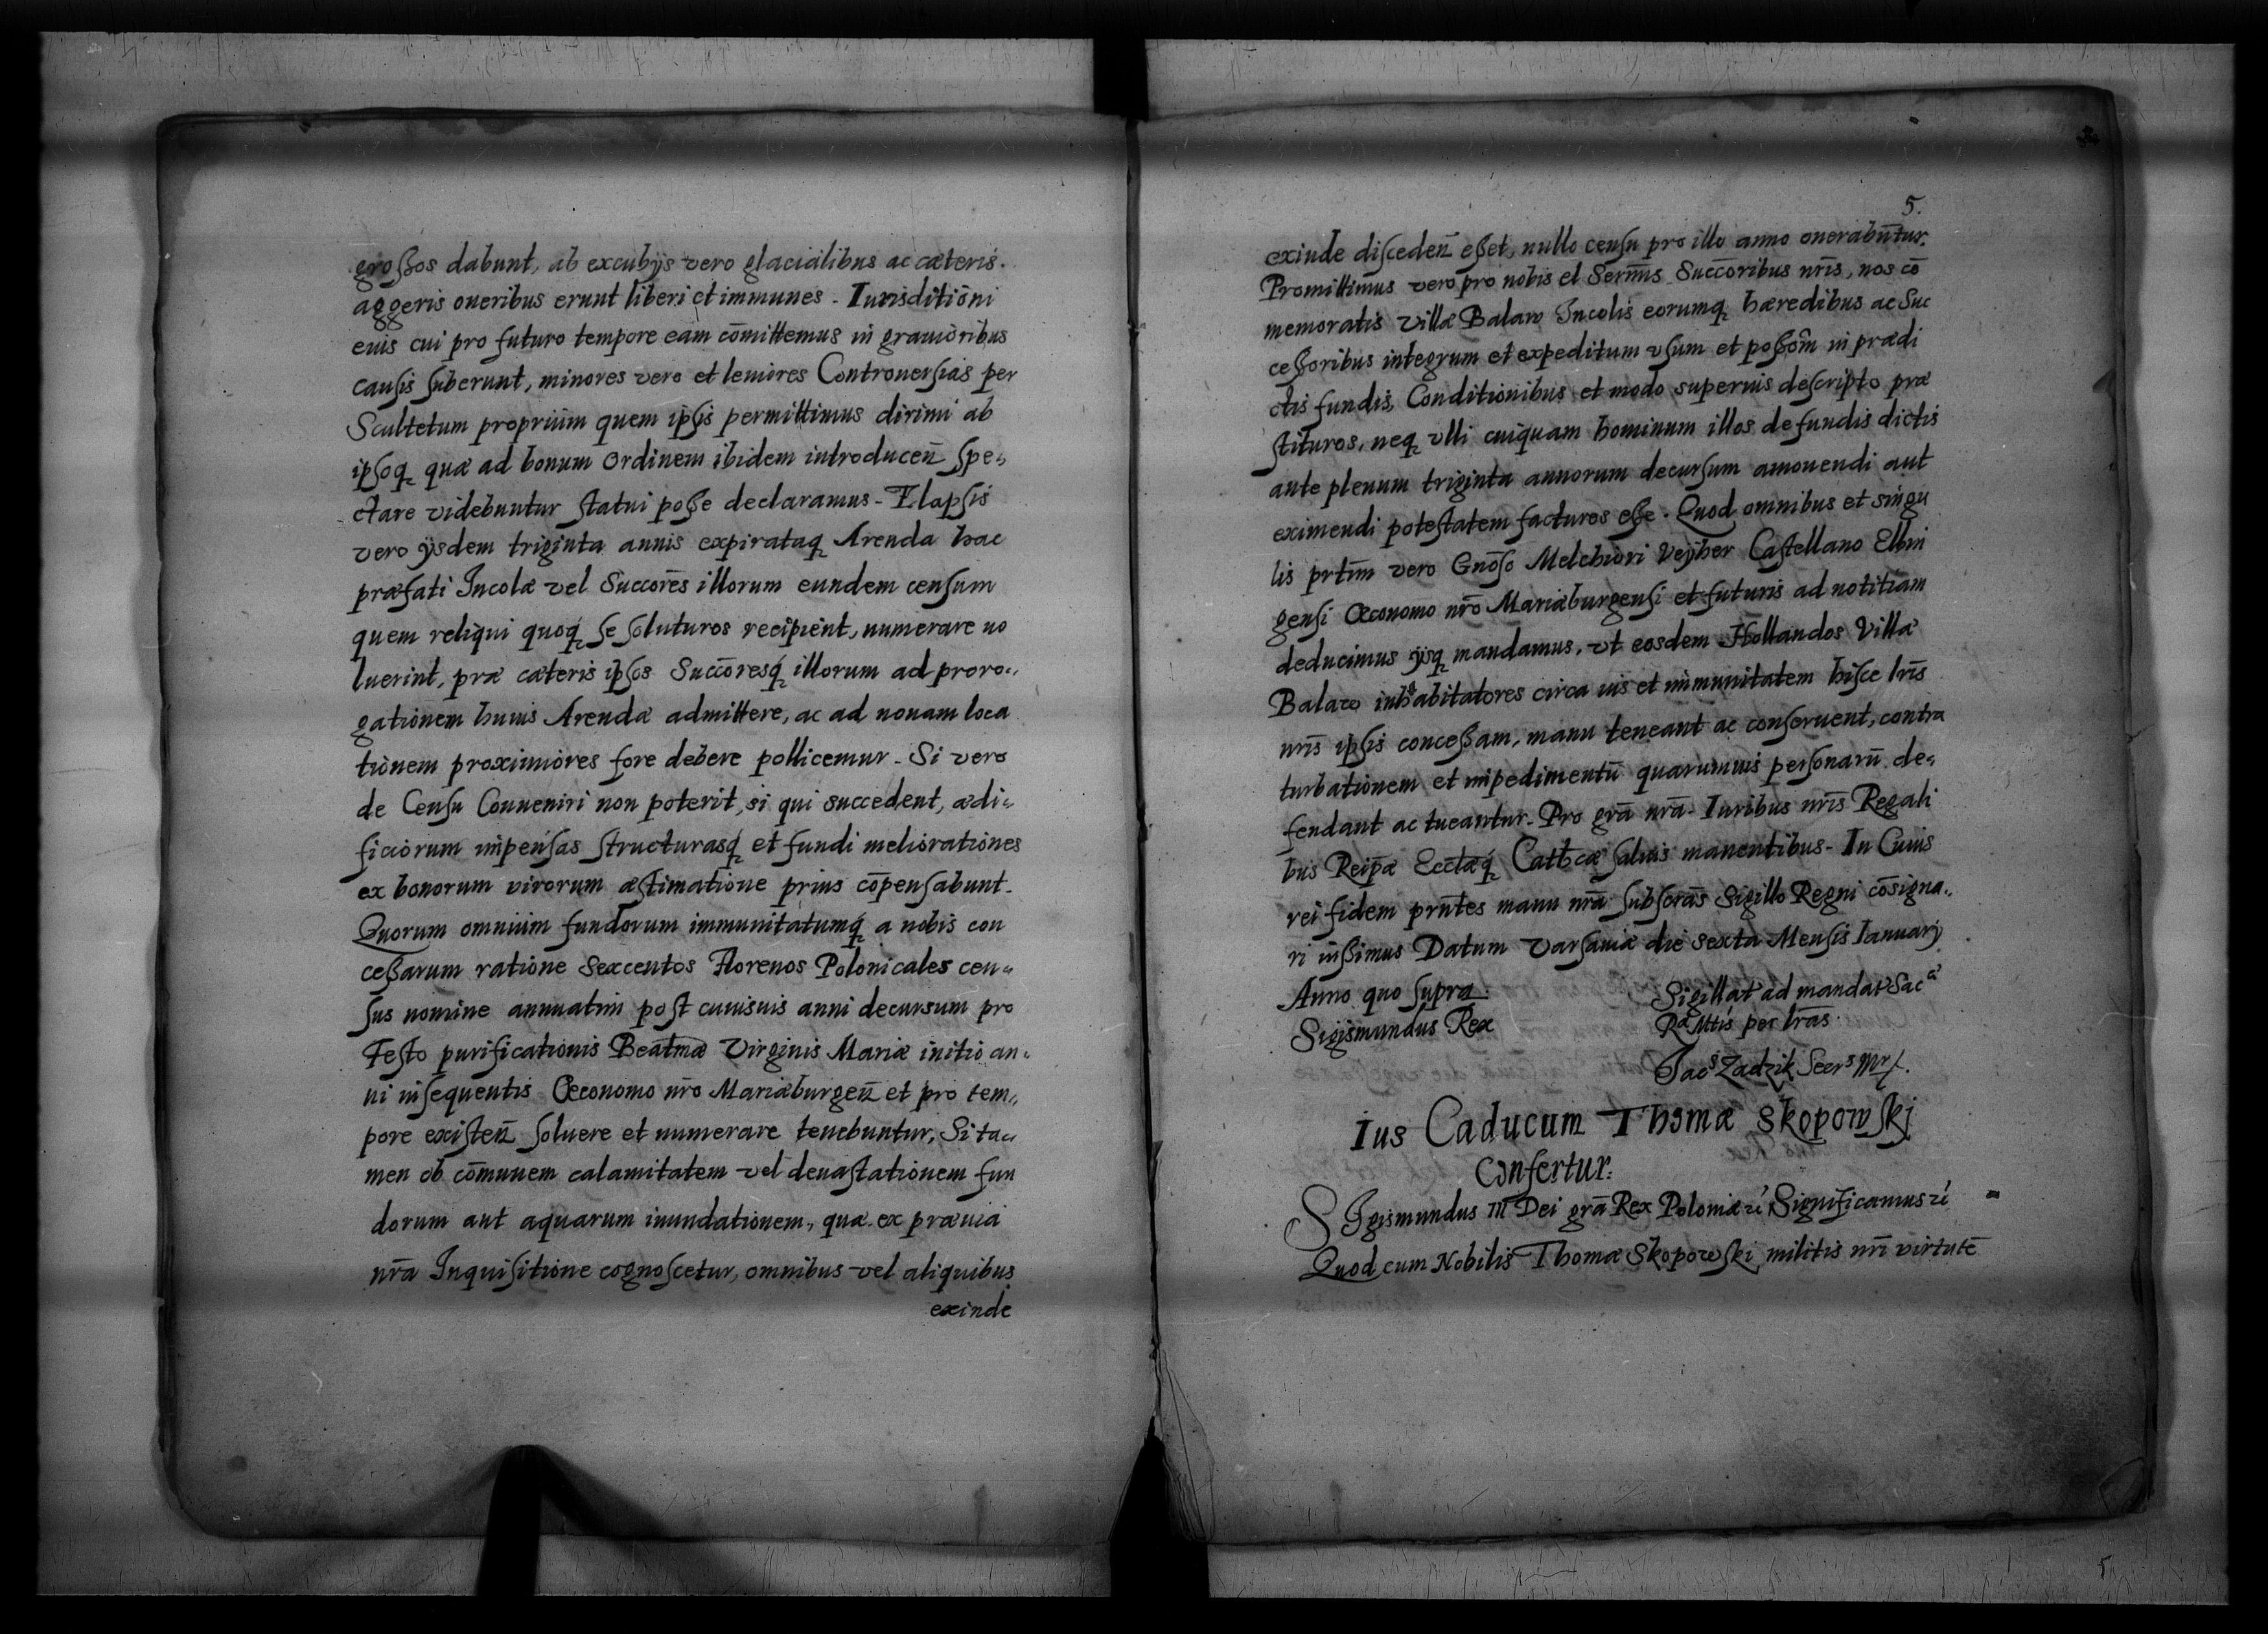 großos dabunt, ab excubijs vero glacialibus ac cæteris.
aggeris oneribus erunt liberi et immunes. Iurisditioni
eius cui pro futuro tempore eam cōmittemus in grauioribus
causis suberunt, minores vero et leuiores Controuersias per
Scultetum proprium quem ipsis permittimus dirimi ab
ipsoq quæ ad bonum Ordinem ibidem introducen̄ spe-
ctare videbuntur statui poße declaramus. Elapsis
vero ijsdem triginta annis expirataq Arenda hac
præfati Incolæ vel Succōres illorum eundem censum
quem reliqui quoq se soluturos recipient, numerare uo
luerint, præ cæteris ipsos Succōresq illorum ad proro-
gationem huius Arendæ admittere, ac ad nouam loca
tionem proximiores fore debere pollicemur. Si vero
de Censu Conueniri non poterit, si qui succedent, ædi-
ficiorum impensas structurasq et fundi meliorationes
ex bonorum virorum æstimatione prius cōpensabunt.
Quorum omnium fundorum immunitatumq a nobis con
ceßarum ratione sexcentos Florenos Polonicales cen-
sus nomine annuatim post cuiusuis anni decursum pro
Festo purificationis Beatm̄æ Virginis Mariæ initio an-
ni insequentis Œconomo nr̄o Mariæburgen̄ et pro tem-
pore existen̄ soluere et numerare tenebuntur, Si ta-
men ob cōmunem calamitatem vel deuastationem fun
dorum aut aquarum inundationem, quæ ex præuia
nr̄a Inquisitione cognoscetur, omnibus vel aliquibus
exinde
5.
exinde disceden̄ eßet, nullo censu pro illo anno onerabūtur.
Promittimus vero pro nobis et Serm̄is Succōribus nr̄is, nos cō
memoratis Villæ Balaw Incolis eorumq hæredibus ac Suc
ceßoribus integrum et expeditum vsum et poßōm in prædi
ctis fundis, Conditionibus et modo superius descripto præ
stituros, neq vlli cuiquam hominum illos de fundis dictis
ante plenum triginta annorum decursum amouendi aut
eximendi potestatem facturos eße. Quod omnibus et singu
lis prtīm vero Gnōso Melchiori Veyher Castellano Elbin
gensi Œconomo nr̄o Mariæburgensi et futuris ad notitiam
deducimus ijsq mandamus, vt eosdem Hollandos Villæ
Balaw inhabitatores circa ius et immunitatem hisce lr̄is
nr̄is ipsis conceßam, manu teneant ac conseruent, contra
turbationem et impedimentū quarumuis personarū de-
fendant ac tueantur. Pro grā nr̄a. Iuribus nr̄is Regali
bus Reip̄æ Ecctæq Cathcæ saluis manentibus. In Cuius
rei fidem prn̄tes manu nr̄a subscrās Sigillo Regni cōsigna-
ri iußimus Datum Varsauiæ die sexta Mensis Ianuarij
Anno quo supra
Sigismundus Rex
Sigillat ad mandat Sacᵃ
Rᵃ Mttis per lr̄as
Jacˢ Zadzik Secrˢ Mr
Ius Caducum Thomæ Skopowskj
Confertur.
SIgismundus III Dei grā Rex Poloniæ zć Significamus zć
Quod cum Nobilis Thomæ Skopowski militis nr̄i virtutē
5